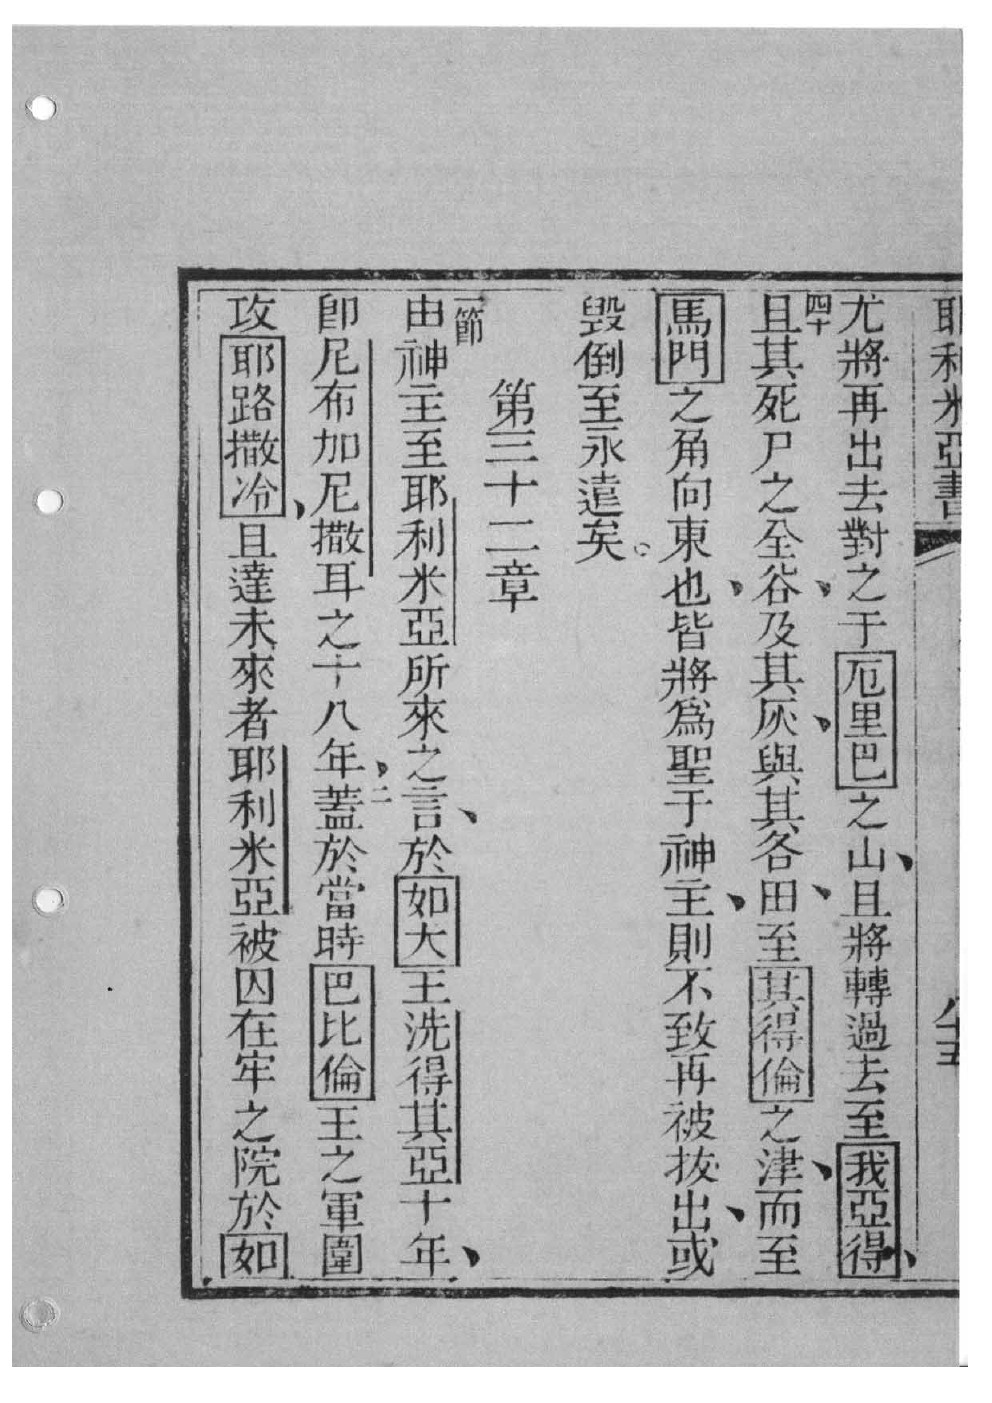 耶利米亞書 八十五
尤將再出去對之于厄里巴之山、且將轉過去至我亞得、
四十 且其死尸之全谷、及其灰、與其各田、至其得倫之津、而至
馬門之角向東也、皆將爲聖于神主、則不致再被拔出、或
毀倒至永遠矣。
第三十二章
一節 由神主至耶利米亞所來之言、於如大王洗得其亞十年、
卽尼布加尼撒耳之十八年、二 蓋於當時巴比倫王之軍圍
攻耶路撒冷、且達未來者耶利米亞被囚在牢之院於如